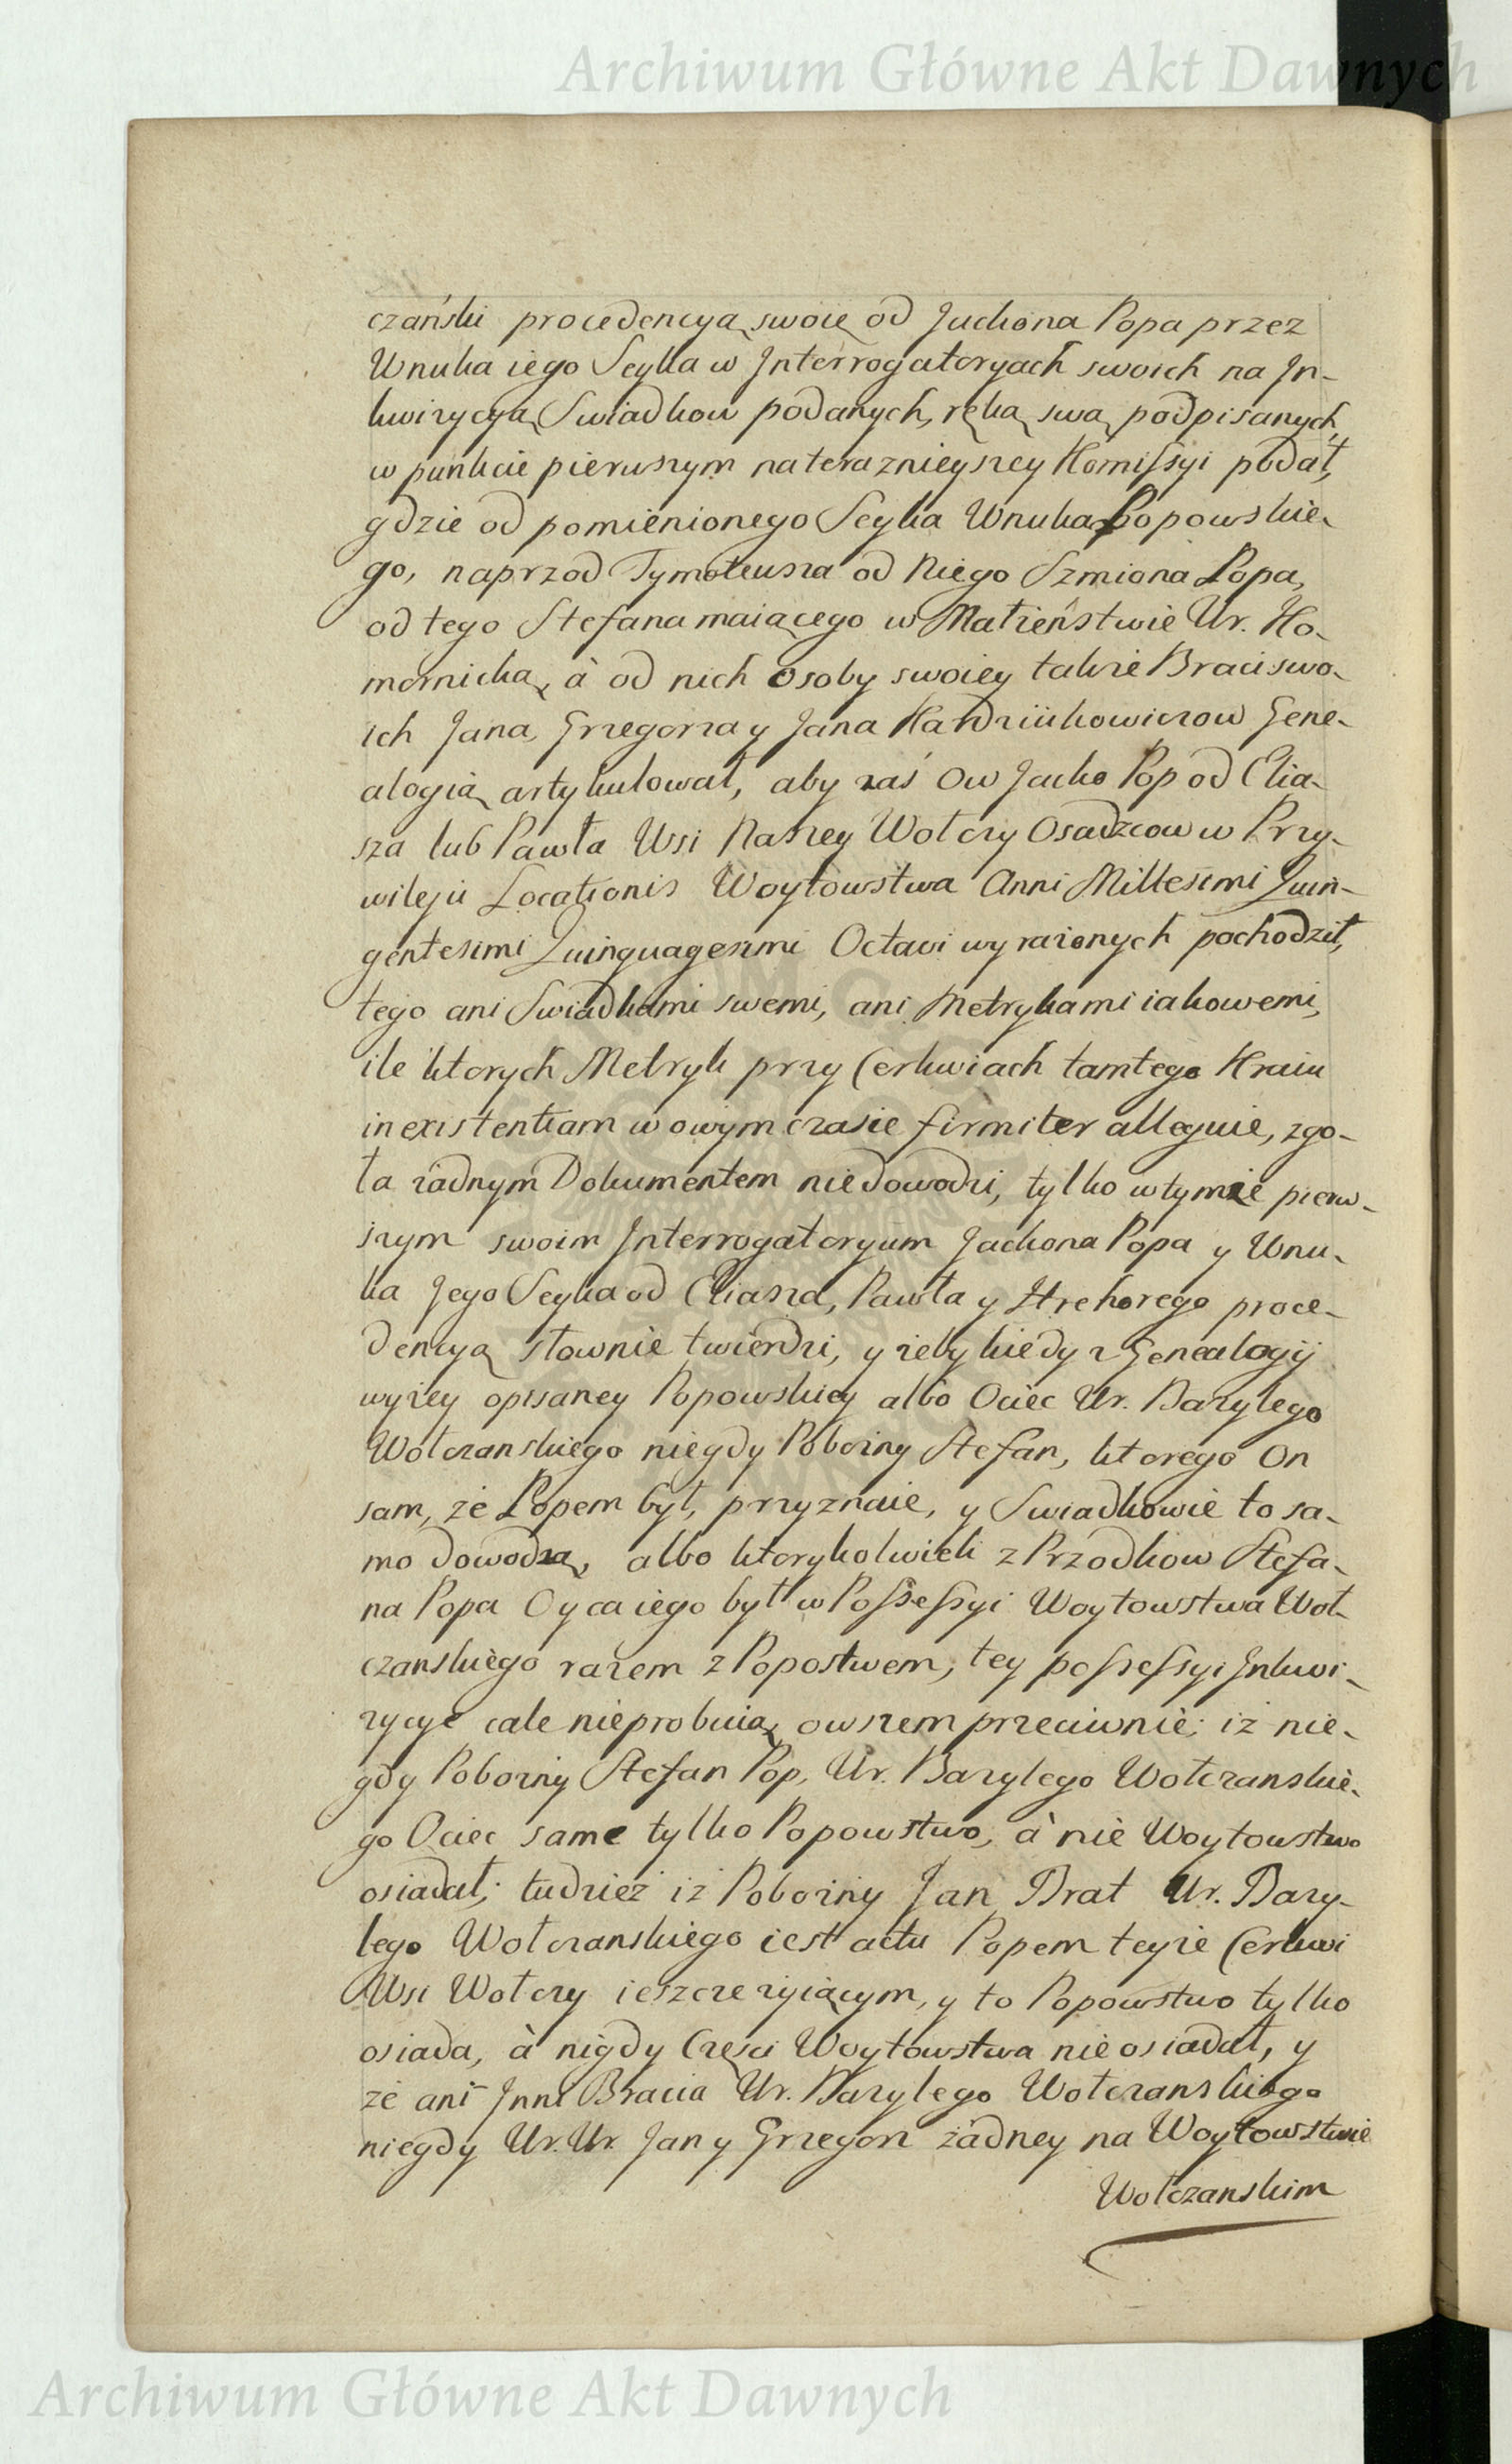 Archiwum Główne Akt Dawnych
czański procedencyą swoię od Jackona Popa przez
Wnuka iego Seyka w Interrogatoryach swoich na In-
kwizycyą Swiadkow podanych, ręką swą podpisanych,
w punkcie pierwszym na teraznieyszey Komissyi podał,
gdzie od pomienionego Seyka Wnuka Popowskie-
go, naprzod Tymoteusza od Niego Szmiona Popa,
od tego Stefana maiącego w Małżeństwie Ur. Ko-
mornicką, à od nich osoby swoiey także Braci swo-
ich Jana, Grzegorza y Jana Hardziiikowiczow Gene-
alogią artykułował, aby zaś ow Jacko Pop od Elia-
sza lub Pawła Wsi Naszey Wołczy Osadzcow w Przy-
wileju Locationis Woytowstwa Anni Millesimi Quin-
gentesimi Quinquagesimi Octavi wyrażonych pochodził,
tego ani Swiadkami swemi, ani Metrykami iakowemi,
ile ktorych Metryk przy Cerkwiach tamtego Kraiu
inexistentiam w owym czasie firmiter alleguie, zgo-
ła żadnym Dokumentem niedowodzi, tylko w tymże pierw-
szym swoim Interrogatoryum Jackona Popa y Wnu-
ka Jego Seyka od Eliasza, Pawła y Hrehorego proce-
dencyą słownie twierdzi, y żeby kiedy z Genealogij
wyżey opisaney Popowskiey albo Ociec Ur. Bazylego
Wołczanskiego niegdy Pobożny Stefan, ktorego On
sam, że Popem był, przyznaie, y Swiadkowie to sa-
mo dowodzą, albo ktorykolwiek z Przodkow Stefa-
na Popa Oyca iego był w Possessyi Woytowstwa Woł-
czanskiego razem z Popostwem, tey possessyi Inkwi-
zycye cale nieprobuią, owszem przeciwnie; iż nie-
gdy Pobożny Stefan Pop, Ur. Bazylego Wołczanskie-
go Ociec same tylko Popowstwo, à nie Woytowstwo
osiadał; tudzież iż Pobożny Jan Brat Ur. Bazy-
lego Wołczanskiego iest actu Popem teyże Cerkwi
Wsi Wołczy ieszcze żyiącym, y to Popowstwo tylko
osiada, à nigdy Części Woytowstwa nie osiadał, y
że ani Inni Bracia Ur. Bazylego Wołczanskiego
niegdy Ur. Ur. Jan y Grzegorz żadney na Woytowstwie
Wołczanskim
Archiwum Główne Akt Dawnych